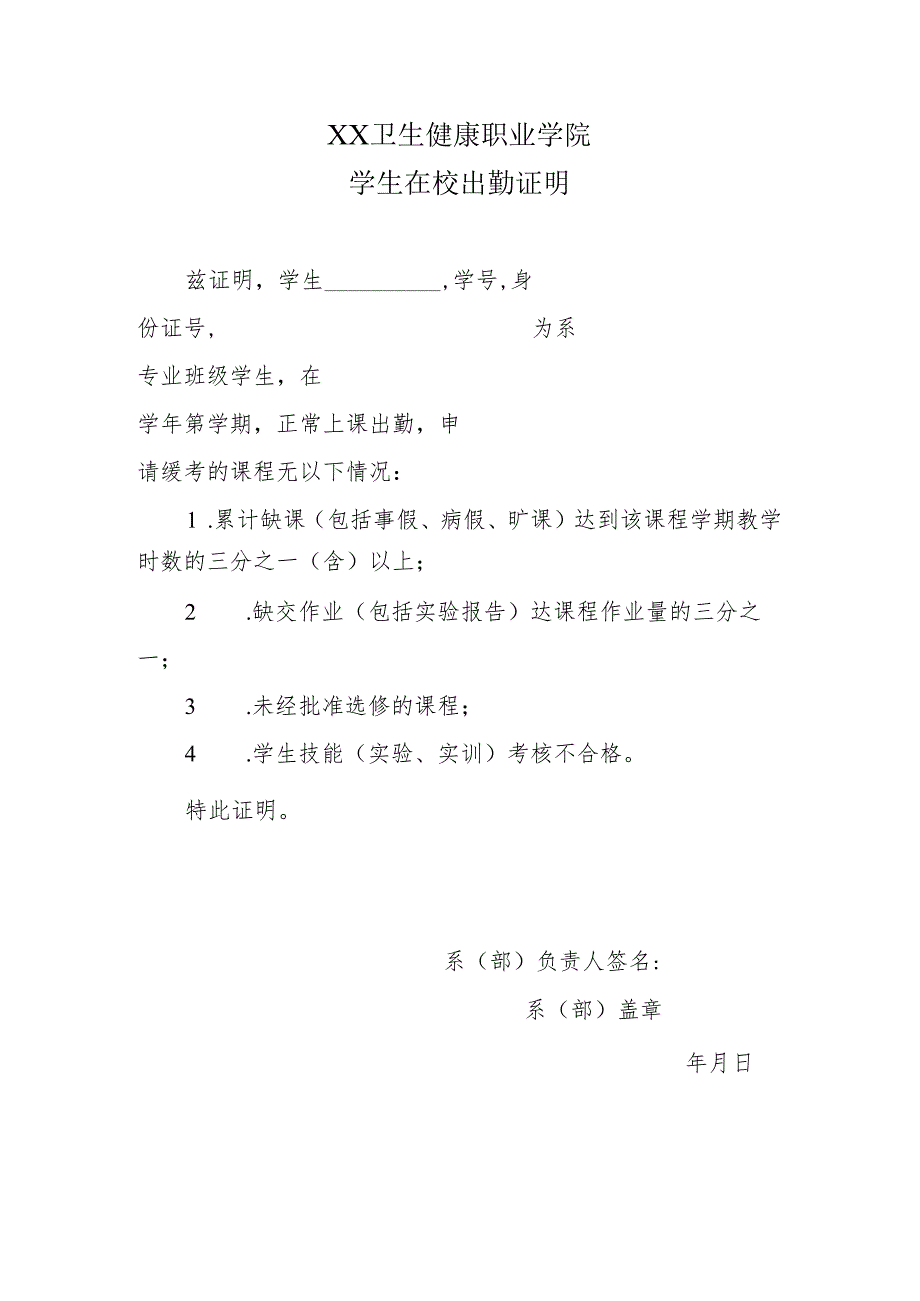 XX卫生健康职业学院
学生在校出勤证明
兹证明，学生__________,学号,身
份证号, 为系
专业班级学生，在
学年第学期，正常上课出勤，申
请缓考的课程无以下情况：
1 .累计缺课（包括事假、病假、旷课）达到该课程学期教学
时数的三分之一（含）以上；
2 .缺交作业（包括实验报告）达课程作业量的三分之
一；
3 .未经批准选修的课程；
4 .学生技能（实验、实训）考核不合格。
特此证明。
系（部）负责人签名:
系（部）盖章
年月日